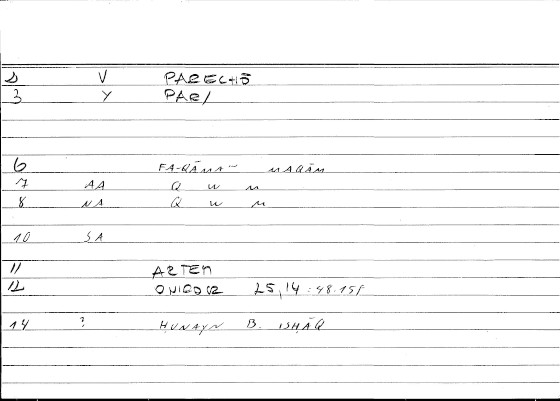 2 V PARECHŌ
3 Y PAR/
6 FA-QĀMA- MAQĀM
7 AA Q W M
8 NA Q W M
10 SA
11 ARTEM
12 ONIRO 25,14:48.15f
14 ? ḤUNAYN B. ISḤĀQ